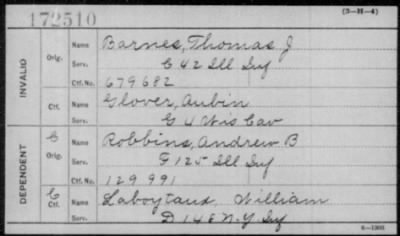 172510
(3-H-4)
INVALID
Orig.
Name Barnes, Thomas J
Serv. C 42 Ill Inf
Ctf. No. 679682
Ctf.
Name Glover, Aubin
Serv. G 4 Wis Cav
DEPENDENT
C
Orig.
Name Robbins, Andrew B
Serv. F 125 Ill Inf
Ctf. No. 129991
C
Ctf.
Name Laboytaux, William
Serv. D 148 N.Y. Inf
6-1903